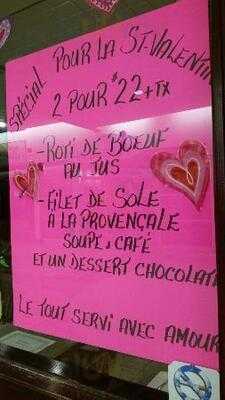 SPÉCIAL POUR LA ST-VALENTIN
2 POUR $22 + TX
- RÔTI DE BOEUF
AU JUS
- FILET DE SOLE
À LA PROVENÇALE
SOUPE, CAFÉ
ET UN DESSERT CHOCOLATÉ
LE TOUT SERVI AVEC AMOUR